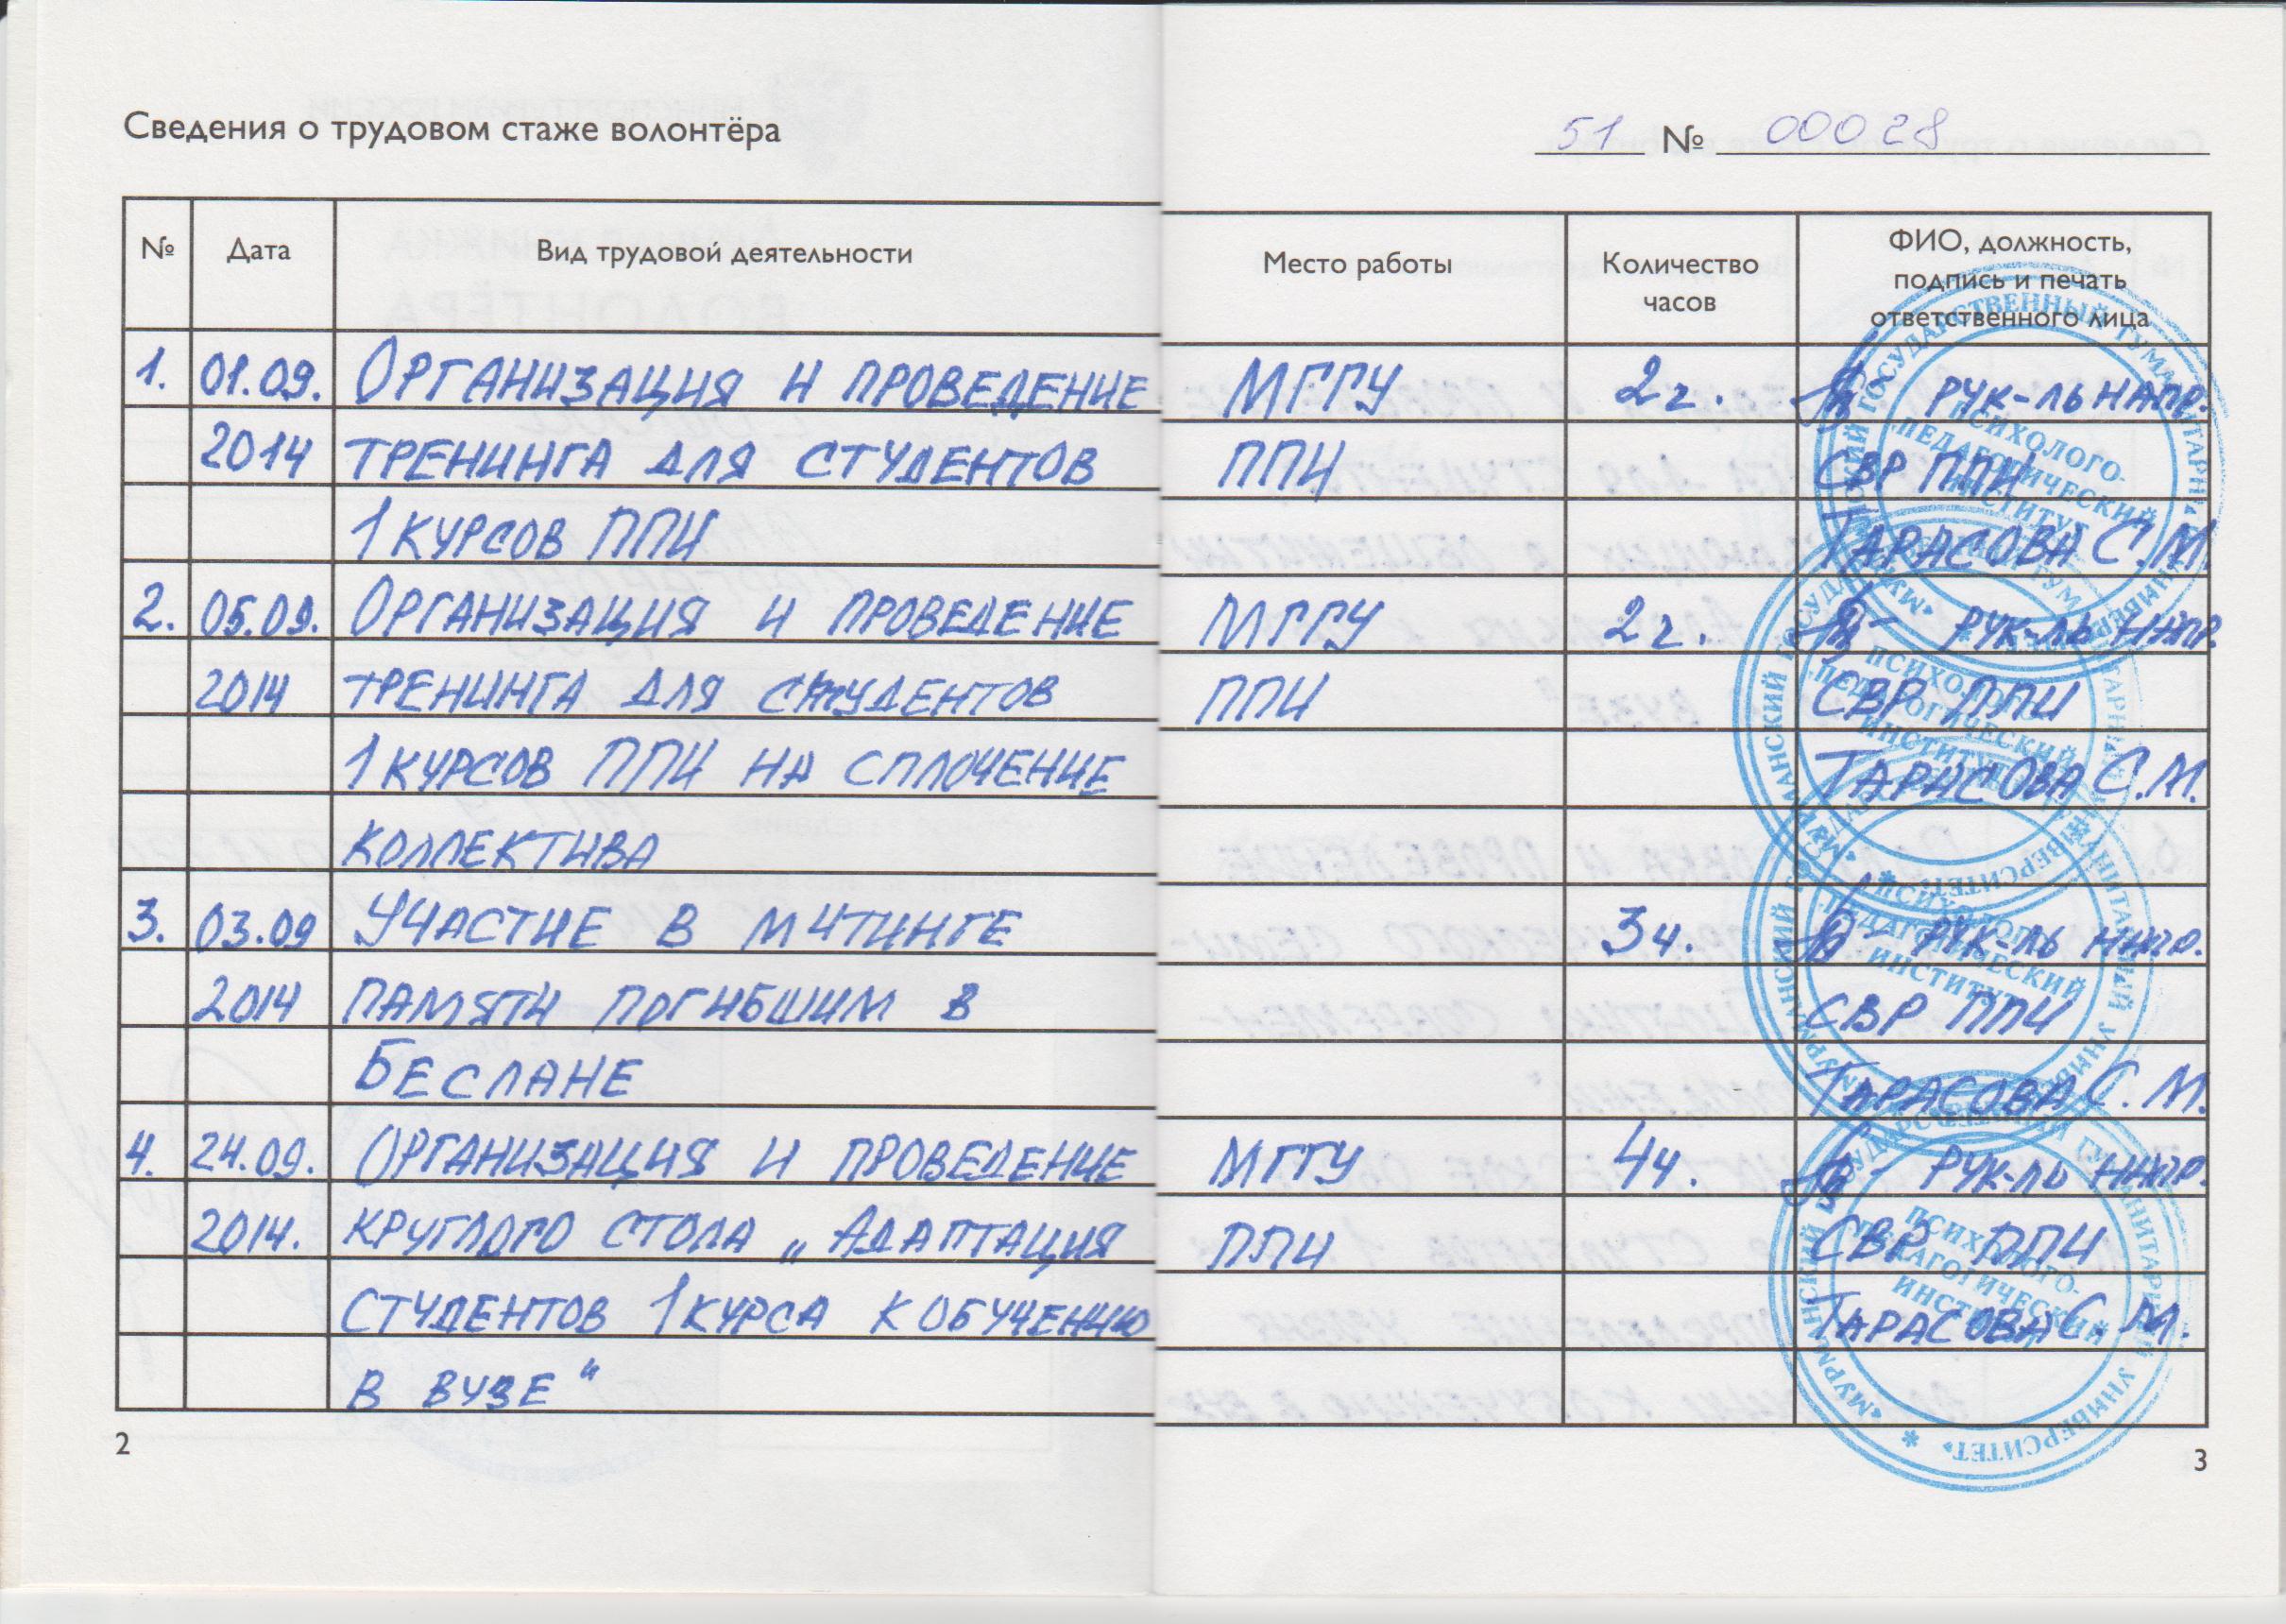 Сведения о трудовом стаже волонтёра
51 № 00028
№ Дата Вид трудовой деятельности Место работы Количество часов ФИО, должность, подпись и печать ответственного лица
1. 01.09. Организация и проведение МГГУ 2ч. рук-ль напр.
2014 тренинга для студентов ППИ СВР ППИ
1 курсов ППИ Тарасова С.М.
2. 05.09. Организация и проведение МГГУ 2ч. рук-ль напр.
2014 тренинга для студентов ППИ СВР ППИ
1 курсов ППИ на сплочение Тарасова С.М.
коллектива
3. 03.09 Участие в митинге 3ч. рук-ль напр.
2014 памяти погибшим в СВР ППИ
Беслане Тарасова С.М.
4. 24.09. Организация и проведение МГГУ 4ч. рук-ль напр.
2014. круглого стола „Адаптация ППИ СВР ППИ
студентов 1 курса к обучению Тарасова С.М.
в вузе“
2
3
ПСИХОЛОГО-
ПЕДАГОГИЧЕСКИЙ
ИНСТИТУТ
«МУРМАНСКИЙ ГОСУДАРСТВЕННЫЙ ГУМАНИТАРНЫЙ УНИВЕРСИТЕТ»